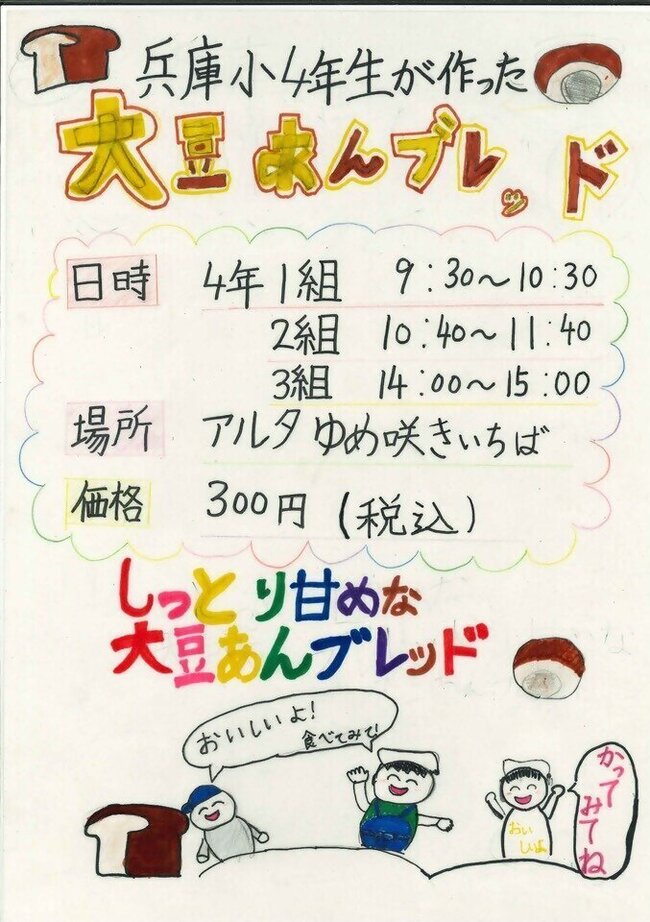 兵庫小4年生が作った
大豆あんブレッド
日時 4年1組 9:30〜10:30
2組 10:40〜11:40
3組 14:00〜15:00
場所 アルタ ゆめ咲きいちば
価格 300円(税込)
しっとり甘めな
大豆あんブレッド
おいしいよ!
食べてみて!
かってみてね
おいしいよ